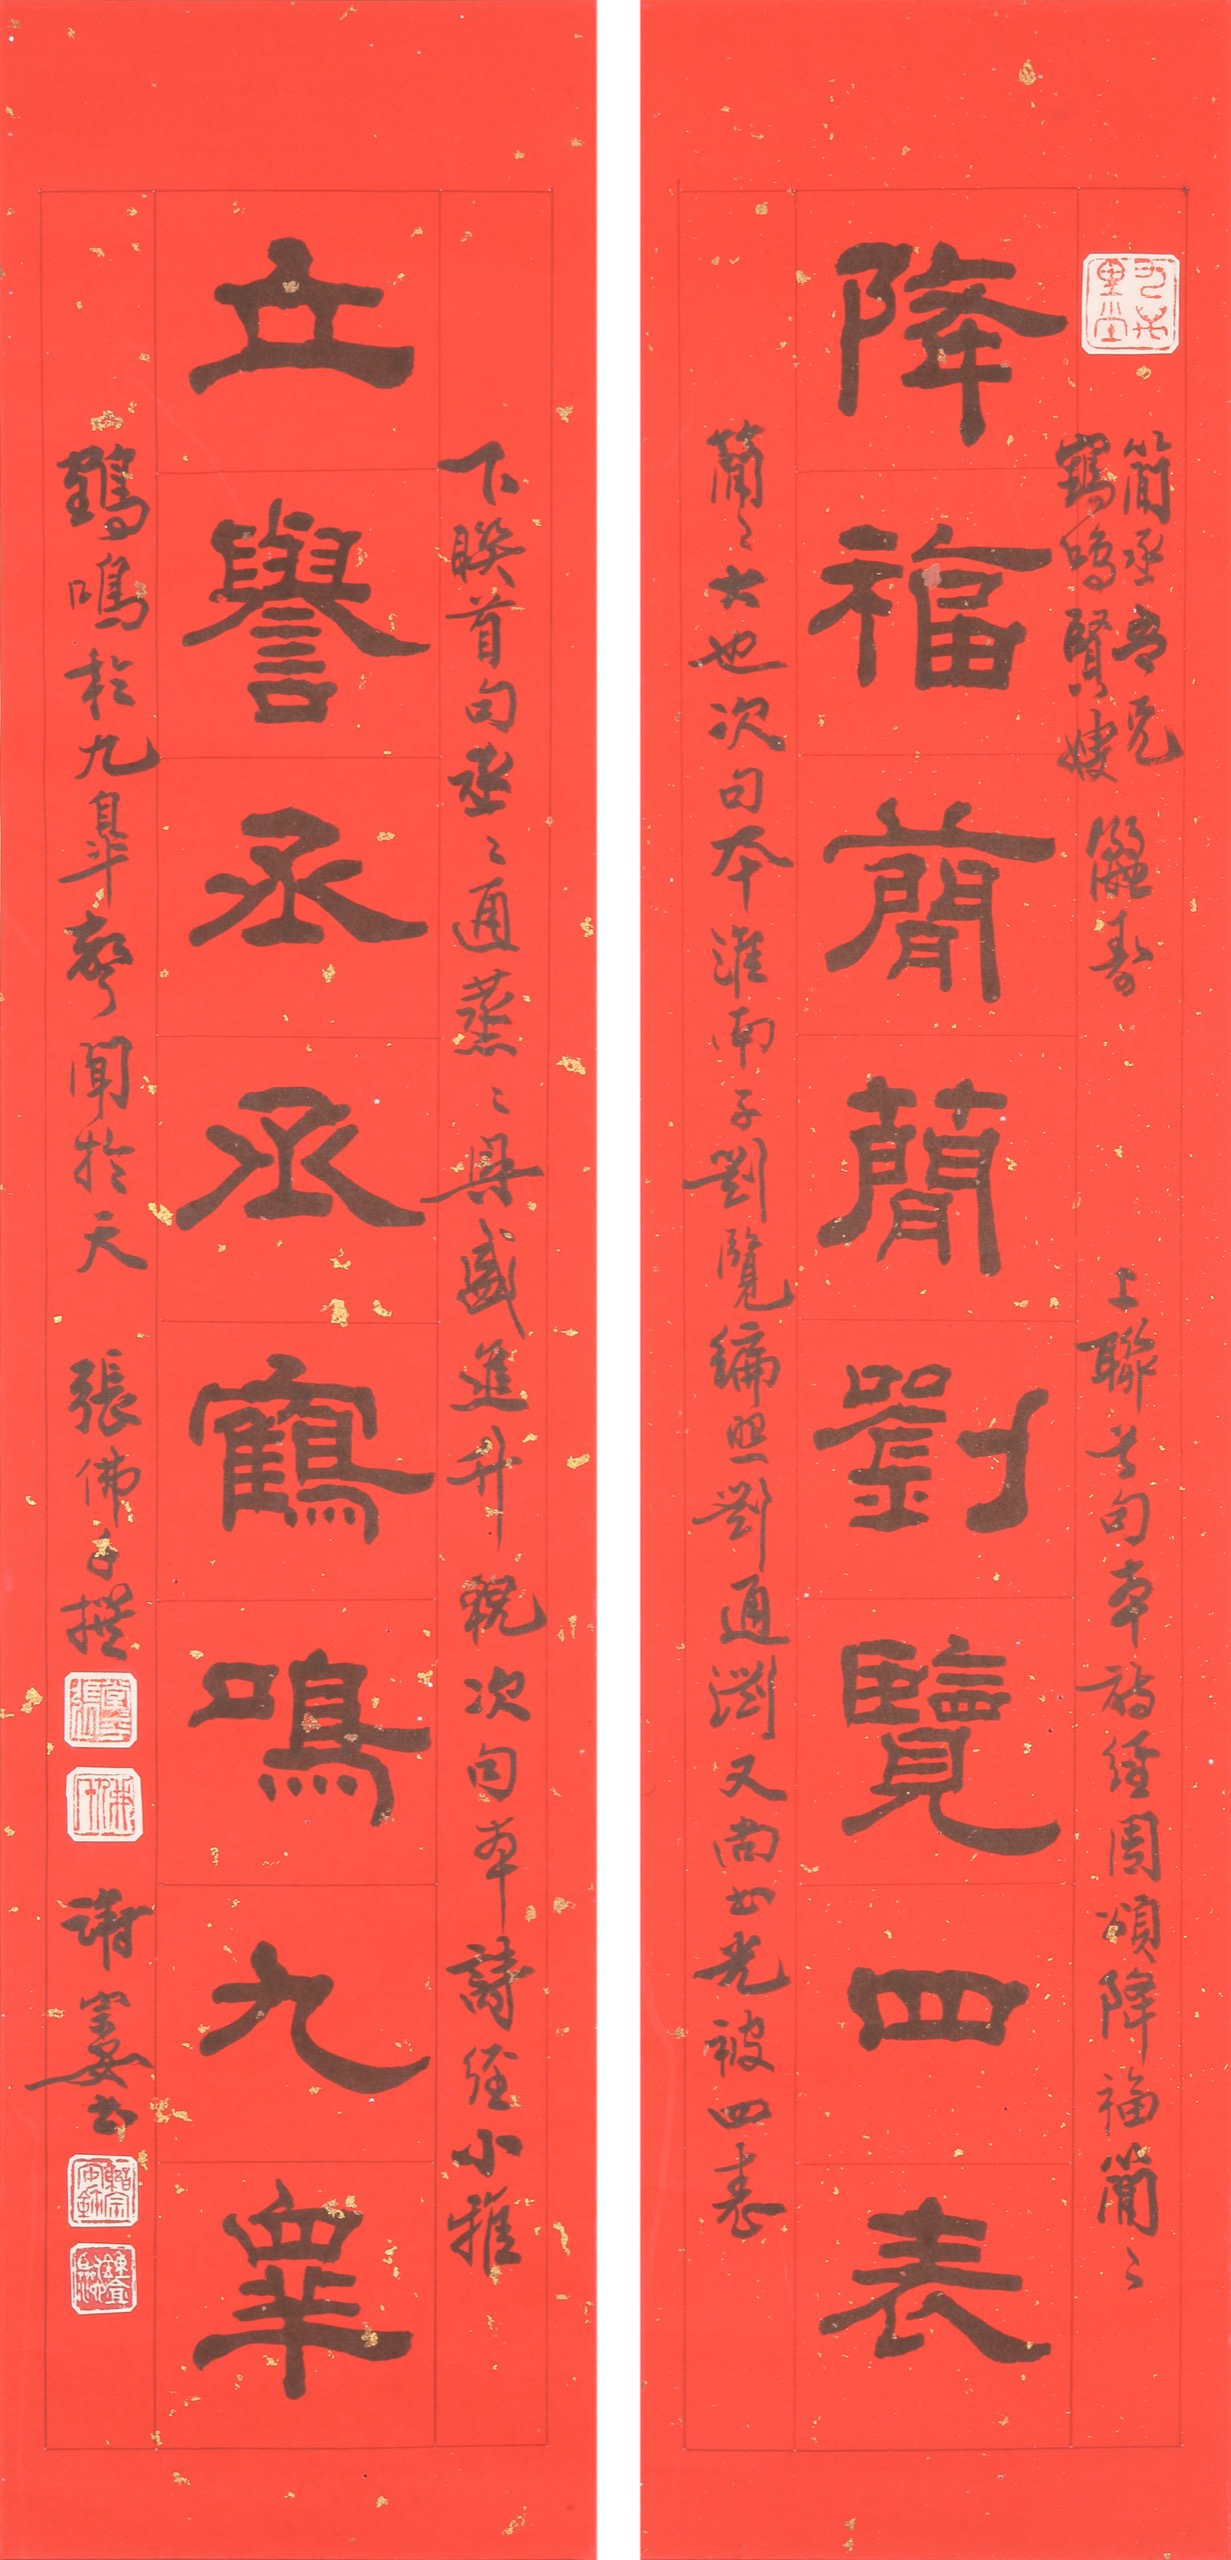 降福簡簡劉覽四表
簡丞吾兄
鶴鳴賢嫂 儷壽
上聯首句本詩經周頌降福簡〻
簡〻大也次句本淮南子劉覽編照劉通瀏又尚書光被四表
立譽丞丞鶴鳴九皋
下聯首句丞〻通蒸〻興盛進升貌次句本詩經小雅
鶴鳴於九皋聲聞於天 張佛千撰
謝宗安書